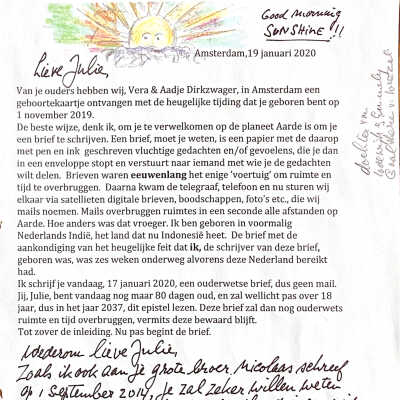 Good morning
SUNSHINE!!
Amsterdam,19 januari 2020
Lieve Julie,
Van je ouders hebben wij, Vera & Aadje Dirkzwager, in Amsterdam een
geboortekaartje ontvangen met de heugelijke tijding dat je geboren bent op
1 november 2019.
De beste wijze, denk ik, om je te verwelkomen op de planeet Aarde is om je
een brief te schrijven. Een brief, moet je weten, is een papier met de daarop
met pen en ink geschreven vluchtige gedachten en/of gevoelens, die je dan
in een enveloppe stopt en verstuurt naar iemand met wie je de gedachten
wilt delen. Brieven waren eeuwenlang het enige 'voertuig' om ruimte en
tijd te overbruggen. Daarna kwam de telegraaf, telefoon en nu sturen wij
elkaar via satellieten digitale brieven, boodschappen, foto's etc., die wij
mails noemen. Mails overbruggen ruimtes in een seconde alle afstanden op
Aarde. Hoe anders was dat vroeger. Ik ben geboren in voormalig
Nederlands Indië, het land dat nu Indonesië heet. De brief met de
aankondiging van het heugelijke feit dat ik, de schrijver van deze brief,
geboren was, was zes weken onderweg alvorens deze Nederland bereikt
had.
Ik schrijf je vandaag, 17 januari 2020, een ouderwetse brief, dus geen mail.
Jij, Julie, bent vandaag nog maar 80 dagen oud, en zal wellicht pas over 18
jaar, dus in het jaar 2037, dit epistel lezen. Deze brief zal dan nog ouderwets
ruimte en tijd overbruggen, vermits deze bewaard blijft.
Tot zover de inleiding. Nu pas begint de brief.
Wederom lieve Julie,
Zoals ik ook aan je grote broer Nicolaas schreef
op 1 September 2014, je zal zeker willen weten
dochter van